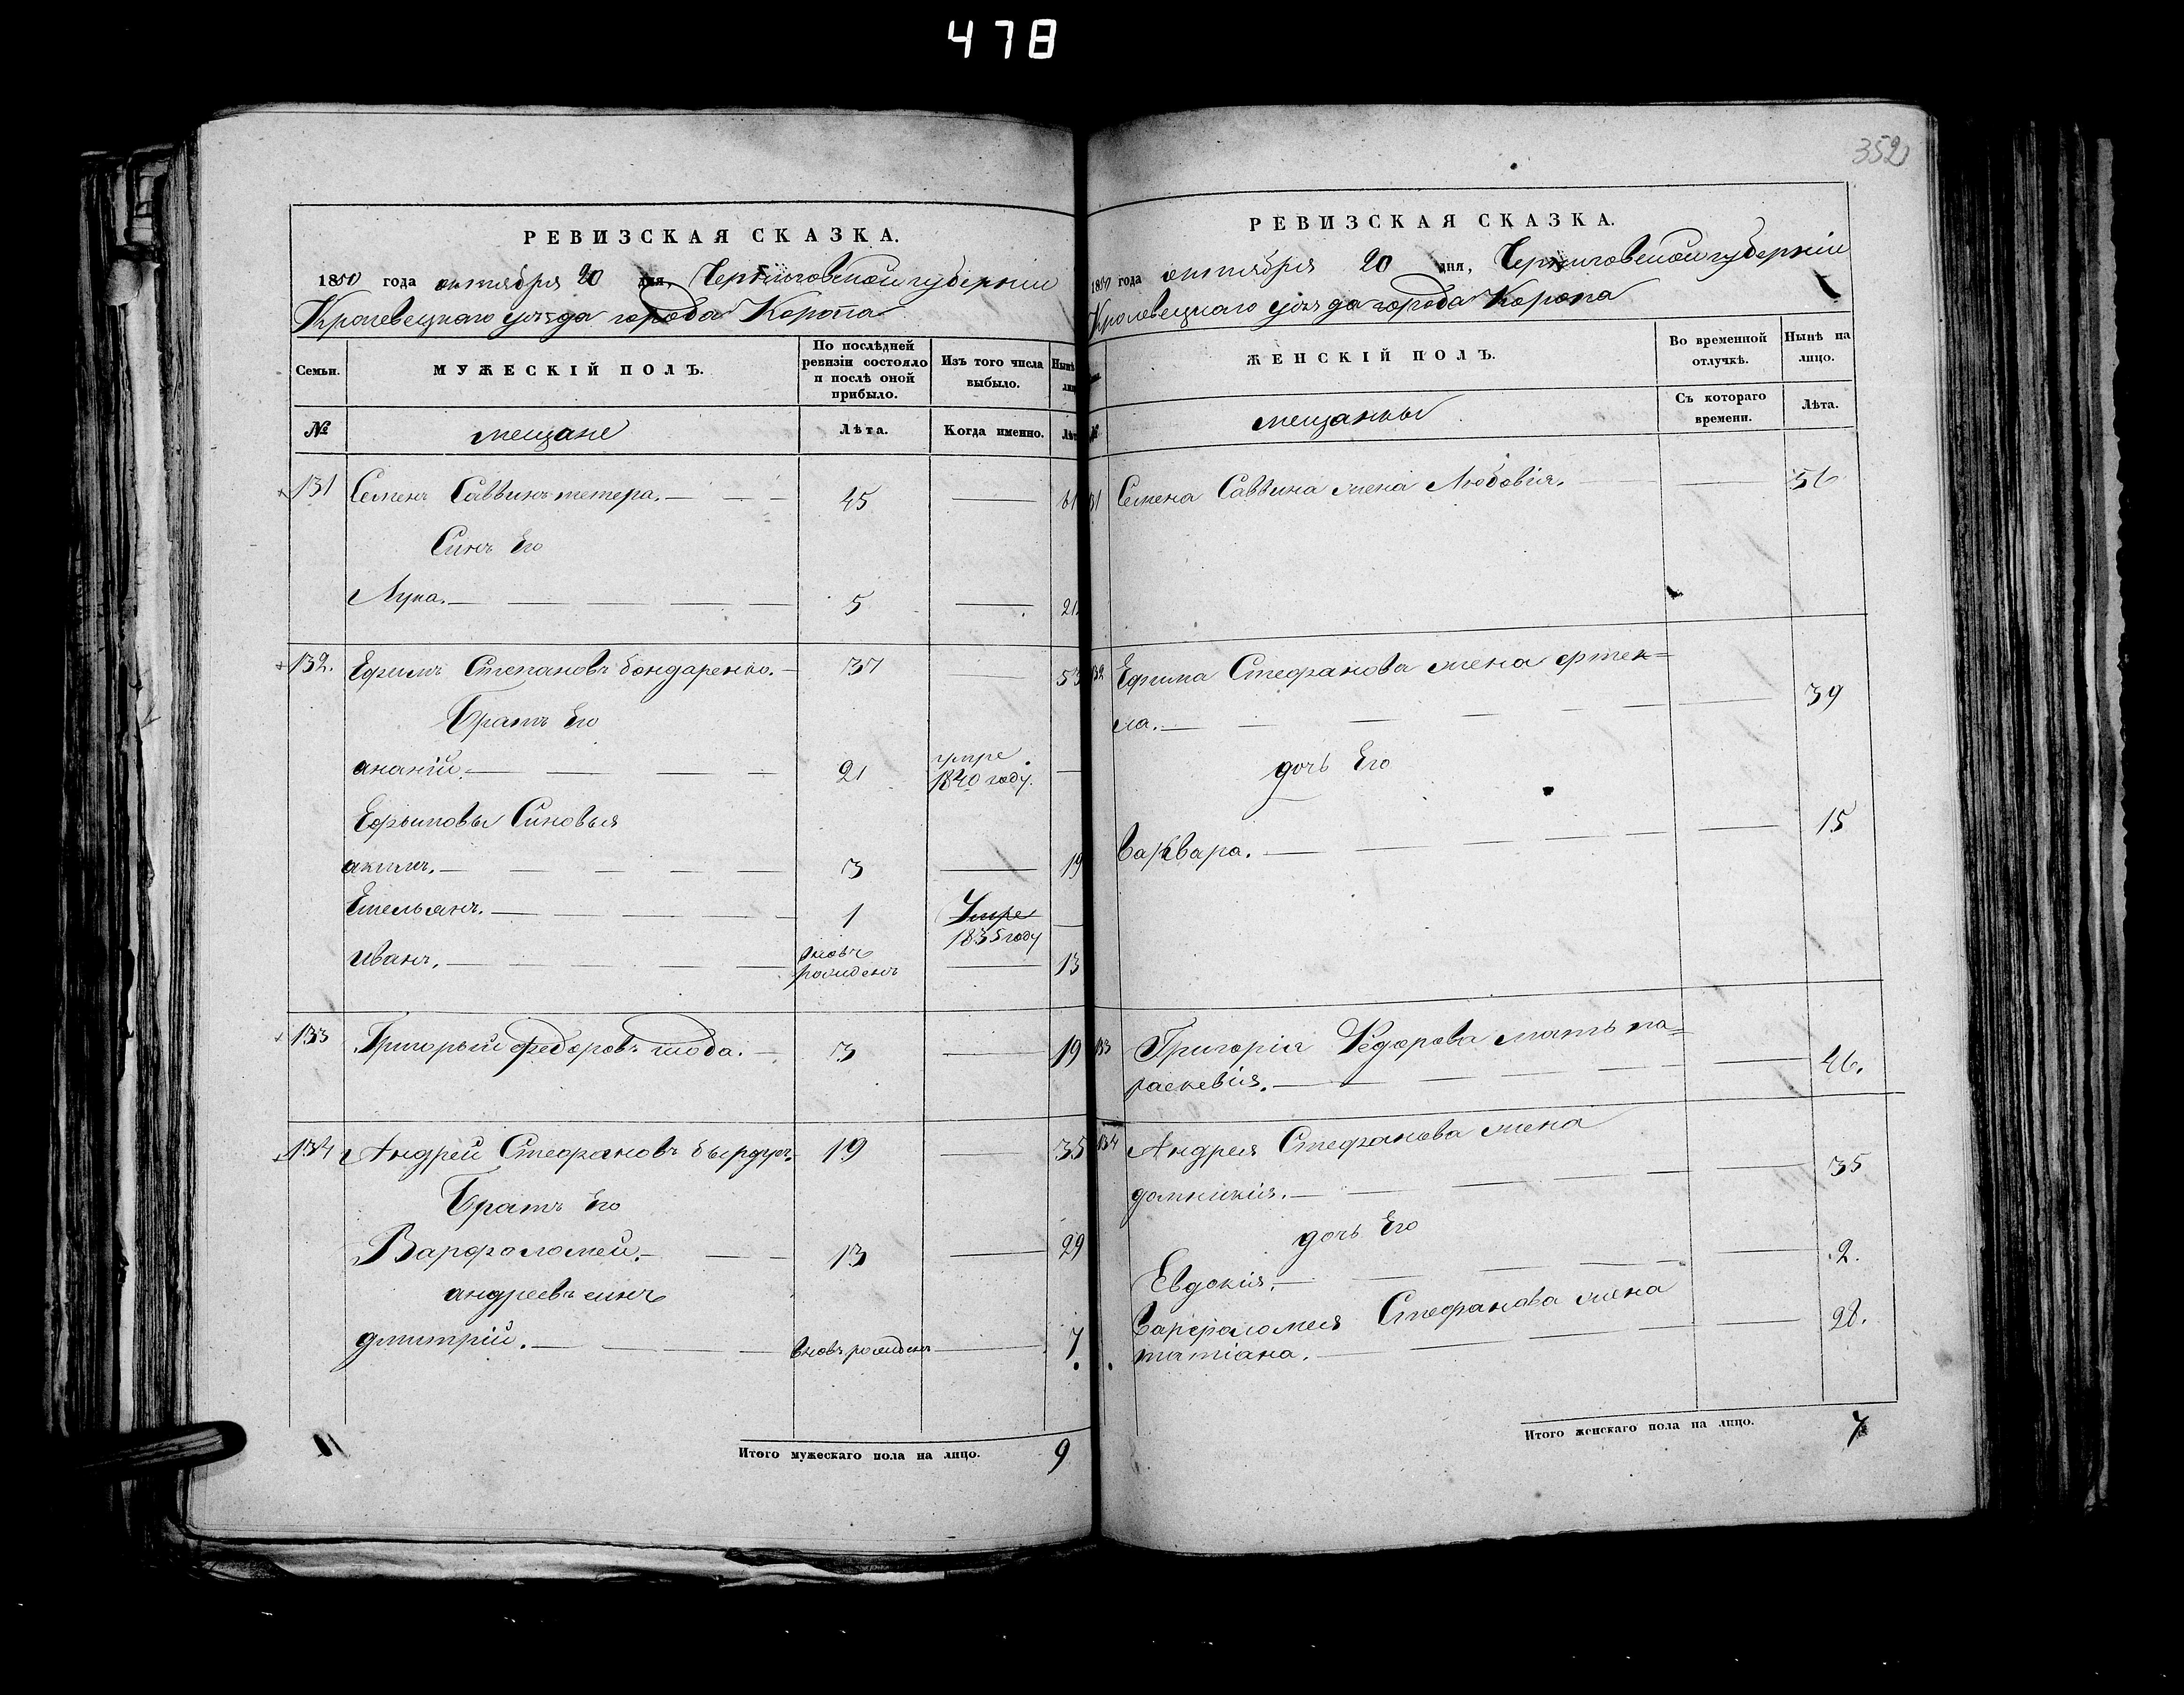 478
352
РЕВИЗСКАЯ СКАЗКА.
1850 года октября 20 дня, Черниговской губернии
Кролевецкаго уезда города Коропа
Семьи. МУЖЕСКІЙ ПОЛЪ. По послѣдней ревизіи состояло и послѣ оной прибыло. Изъ того числа выбыло. Нынѣ
№ мещане Лѣта. Когда именно.
131 Семенъ Саввинъ тетера. 45 61
Синъ Его
Лука. 5 21
132. Ефимъ Степановъ бондаренко. 37 53
Братъ Его
ананій. 21 умре 1840 году.
Ефимовы Синовья
акимъ. 3 19
Емельянъ. 1 Умре 1835 году
иванъ. вновь рожденъ 13
133 Григорий федоровъ 3 19
134 Андрей Стефановъ 19 35
Братъ Его
Варфоломей. 13 29
андреевъ синъ
дмитрій. вновь рожденъ 7
Итого мужескаго пола на лицо. 9
РЕВИЗСКАЯ СКАЗКА.
1850 года октября 20 дня, Черниговской губерніи
Кролевецкаго уезда города Коропа
ЖЕНСКІЙ ПОЛЪ. Во временной отлучкѣ. Нынѣ на лицо.
мещанки Съ котораго времени. Лѣта.
131 Семена Саввина жена Любовія. 56
132 Ефима Стефанова жена фтек=
ла. 39
дочь Его
варвара. 15
133 Григорія Федорова мать па=
раскевія. 46.
134 Андрея Стефанова жена
домникія. 35
дочь Его
Евдокія. 2.
варфоломея Стефанова жена
татіана. 28.
Итого женскаго пола на лицо. 7